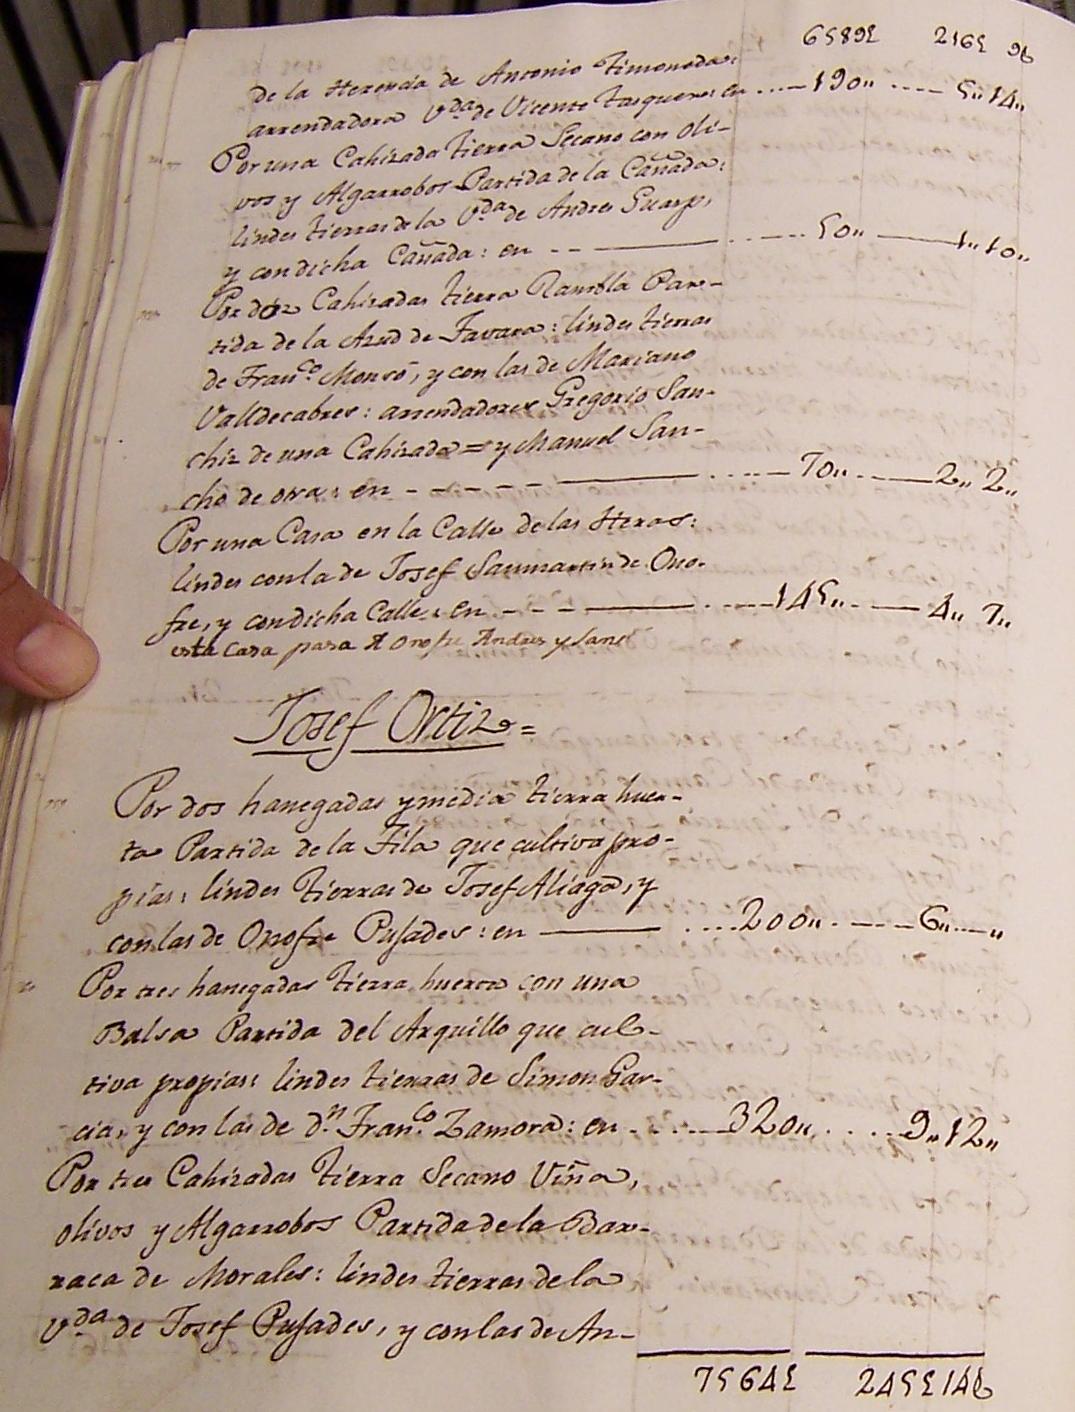 6589£ 216£ 9
de la Herencia de Antonio Timoneda:
arrendadora V.da de Vicente en ..... 190,, ..... 5,, 14,,
Por una Cahizada tierra Secano con oli-
vos y Algarrobos Partida de la Cañada:
lindes tierras de la V.da de Andres Guarp,
y con dicha Cañada: en -- ——— ..... 50,, ——— 1,, 10,,
Por dos Cahizadas tierra Rambla Par-
tida de la Azud de Favara: lindes tierras
de Fran.co Monsó, y con las de Mariano
Valldecabres: arrendadores Gregorio San-
chiz de una Cahizada = y Manuel San-
cho de otra: en - - - - - ——— ..... 70,, ..——— 2,, 2,,
Por una Casa en la Calle de las Heras:
lindes con la de Josef Sanmartin de Ono-
fre, y con dicha Calle: en - - - ——— ..... 145,, ..——— 4,, 7,,
esta casa pasa A Onofre Andres y Sanc
Josef Ortiz =
Por dos hanegadas y media tierra huer-
ta Partida de la Fila que cultiva pro-
pias: lindes tierras de Josef Aliaga, y
con las de Onofre Pusades: en ——— ..... 200,, ..——— 6,, ——— ,,
Por tres hanegadas tierra huerta con una
Balsa Partida del Arquillo que cul-
tiva propias: lindes tierras de Simon Gar-
cia, y con las de d.n Fran.co Zamora: en ..... 320,, ..... 9,, 12,,
Por tres Cahizadas tierra Secano Viña,
olivos y Algarrobos Partida de la Bar-
raca de Morales: lindes tierras de la
V.da de Josef Pusades, y con las de An-
7564£ 245£ 14